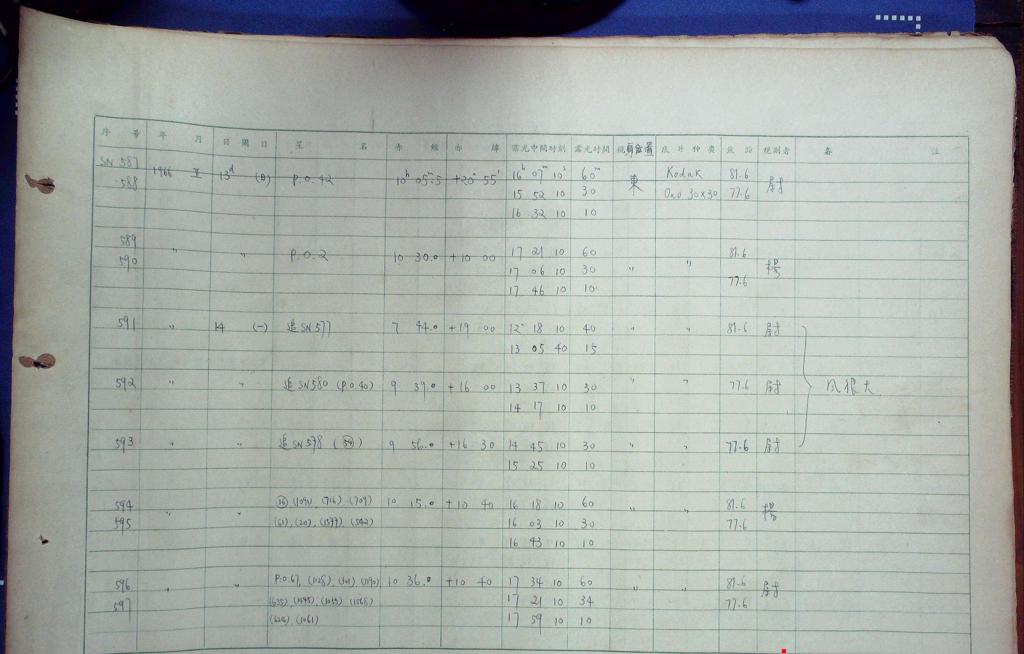 序 號 年 月 日 週 日 星 名 赤 經 赤 緯 露光中間时刻 露光时间 底片种类 焦距 观测者 备 註
SN 587 1966 13d (日) P.O.42 10h 05m.5 +20° 55' 16h 07m 10s 60m 東 Kodak 81.6 尉
588 15 52 10 30 OaO 30x30 77.6
16 32 10 10
589 " " P.O.2 10 30.0 +10 00 17 21 10 60 " " 81.6 楊
590 17 06 10 30 77.6
17 46 10 10
591 " 14 (一) 追 SN 577 7 44.0 +19 00 12 18 10 40 " " 81.6 尉
13 05 40 15
592 " " 追 SN 580 (P.O.40) 9 39.0 +16 00 13 37 10 30 " " 77.6 尉 风很大
14 17 10 10
593 " " 追 SN 578 9 56.0 +16 30 14 45 10 30 " " 77.6 尉
15 25 10 10
594 " " (716) (709) 10 15.0 +10 40 16 18 10 60 " " 81.6 楊
595 (61), (20), (1377), (542) 16 03 10 30 77.6
16 43 10 10
596 " " P.O.67, (1128) 10 36.0 +10 40 17 34 10 60 " " 81.6 尉
597 17 21 10 34 77.6
(1061) 17 59 10 10